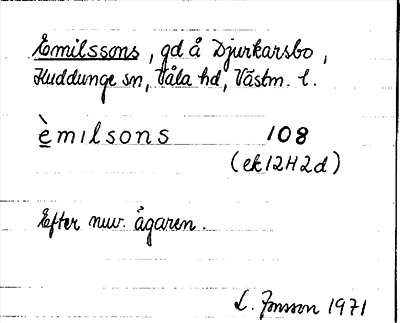 Emilssons, gd å Djurkarsbo,
Huddunge sn, Våla hd, Västm. l.
è̲milsons 108
(ek12H2d)
Efter nuv. ägaren.
L. Jonsson 1971